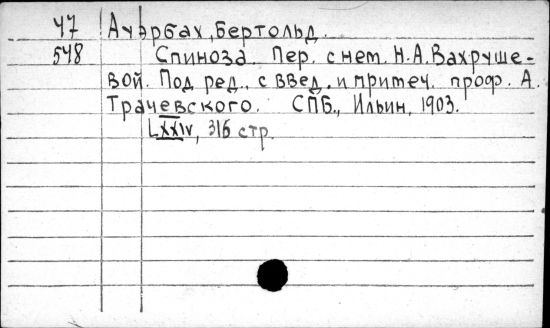 47 Ауэрбах, Бертольд.
548 Спиноза. Пер. с нем. Н.А.Вахруше-
вой. Под ред., с введ. и примеч. проф. А.
Трачевского. СПБ., Ильин, 1903.
LXXIV, 316 стр.